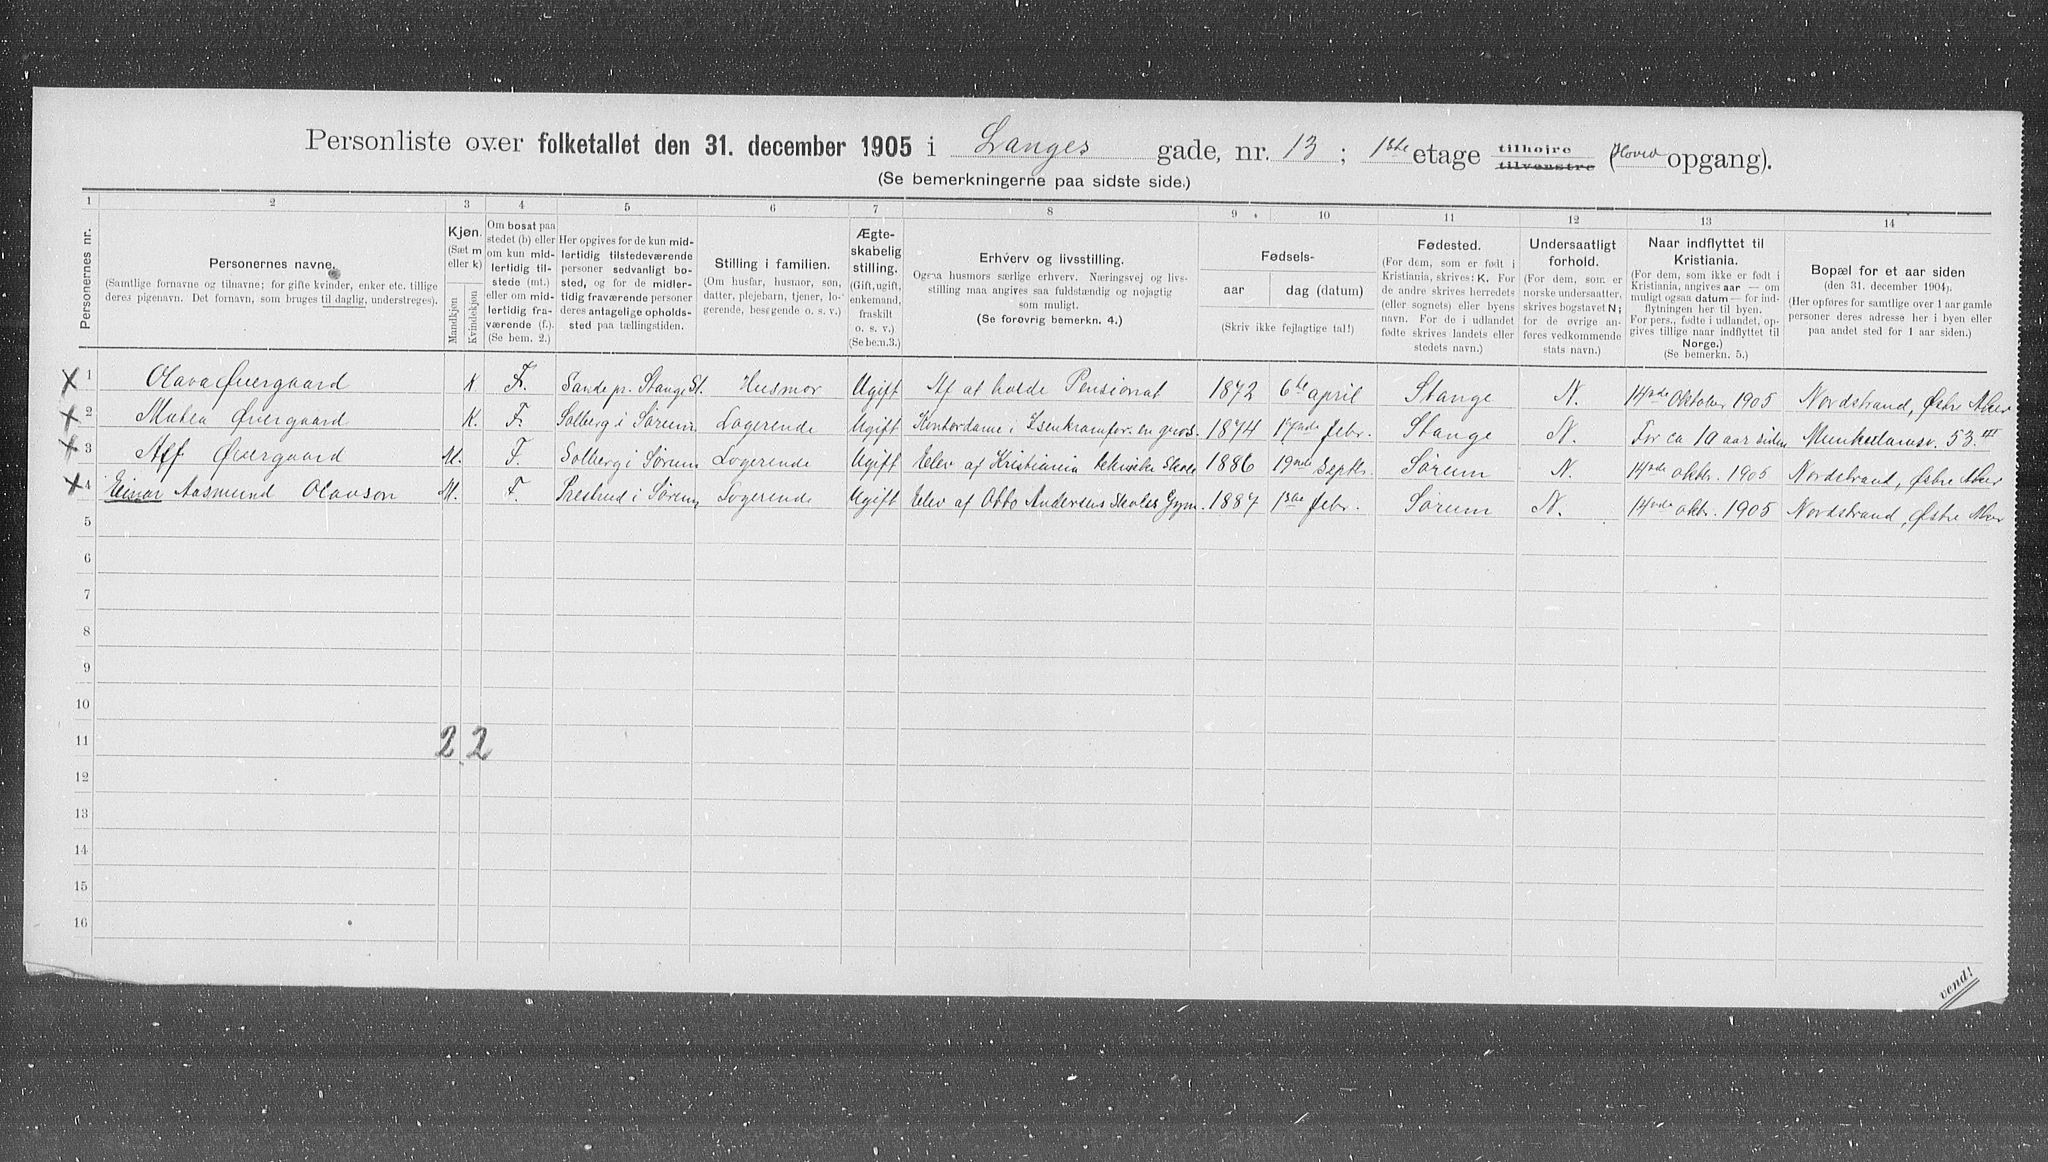 Personliste over folketallet den 31. december 1905 i Langes gade, nr. 13; 1ste etage tilhøire tilvenstre (Hoved opgang).
(Se bemerkningerne paa sidste side.)
1 2 3 4 5 6 7 8 9 10 11 12 13 14
Personernes nr.
Personernes navne.
(Samtlige fornavne og tilnavne; for gifte kvinder, enker etc. tillige
deres pigenavn. Det fornavn, som bruges til daglig, understreges).
Kjøn.
(Sæt m
eller k)
Mandkjøn
Kvindekjøn
Om bosat paa
stedet (b) eller
om kun mid-
lertidig til-
stede (mt.)
eller om mid-
lertidig fra-
værende (f.)
(Se bem. 2.)
Her opgives for de kun mid-
lertidig tilstedeværende
personer sedvanligt bo-
sted, og for de midler-
tidig fraværende personer
deres antagelige opholds-
sted paa tællingstiden.
Stilling i familien.
(Om husfar, husmor, søn,
datter, plejebarn, tjener, lo-
gerende, besøgende o. s. v.)
Ægte-
skabelig
stilling.
(Gift, ugift,
enkemand,
fraskilt
o. s. v.)
(Se bem.3.)
Erhverv og livsstilling.
Ogsaa husmors særlige erhverv. Næringsvej og livs-
stilling maa angives saa fuldstændig og nøjagtig
som muligt.
(Se forøvrig bemerkn. 4.)
Fødsels-
aar dag (datum)
(Skriv ikke fejlagtige tal!)
Fødested.
(For dem, som er født i
Kristiania, skrives: K. For
de andre skrives herredets
(eller sognets) eller byens
navn. For de i udlandet
fødte skrives landets eller
stedets navn.)
Undersaatligt
forhold.
(For dem, som er
norske undersaatter,
skrives bogstavet N;
for de øvrige an-
føres vedkommende
stats navn.)
Naar indflyttet til
Kristiania.
(For dem, som ikke er født i
Kristiania, angives aar — om
muligt ogsaa datum — for ind-
flytningen her til byen.
For pers., fødte i udlandet, op-
gives tillige naar indflyttet til
Norge.)
(Se bemerkn. 5.)
Bopæl for et aar siden
(den 31. december 1904).
(Her opføres for samtlige over 1 aar gamle
personer deres adresse her i byen eller
paa andet sted for 1 aar siden.)
1 Olava Øvergaard K. F. Sande pr. Stange St. Husmor Ugift Af at holde Pensionat 1872 6te april Stange N. 14de Oktober 1905 Nordstrand, Østre Aker
2 Malea Øvergaard K. F. Solberg i Sørum Logerende Ugift Kontordame i Isenkramfor. en gros. 1874 17nde febr. Stange N. For ca 10 aar siden Munkedamsv. 53 III
3 Alf Øvergaard M. F. Solberg i Sørum Logerende Ugift Elev af Kristiania tekniske Skole 1886 19nde Septbr. Sørum N. 14nde oktbr. 1905 Nordstrand, Østre Aker
4 Einar Aasmund Olavson M. F. Prestrud i Sørum Logerende Ugift Elev af Otto Andersens Skoles Gym. 1887 1ste febr. Sørum N. 14nde oktr. 1905 Nordstrand, Østre Aker
5
6
7
8
9
10
11 2 2
12
13
14
15
16
vend!